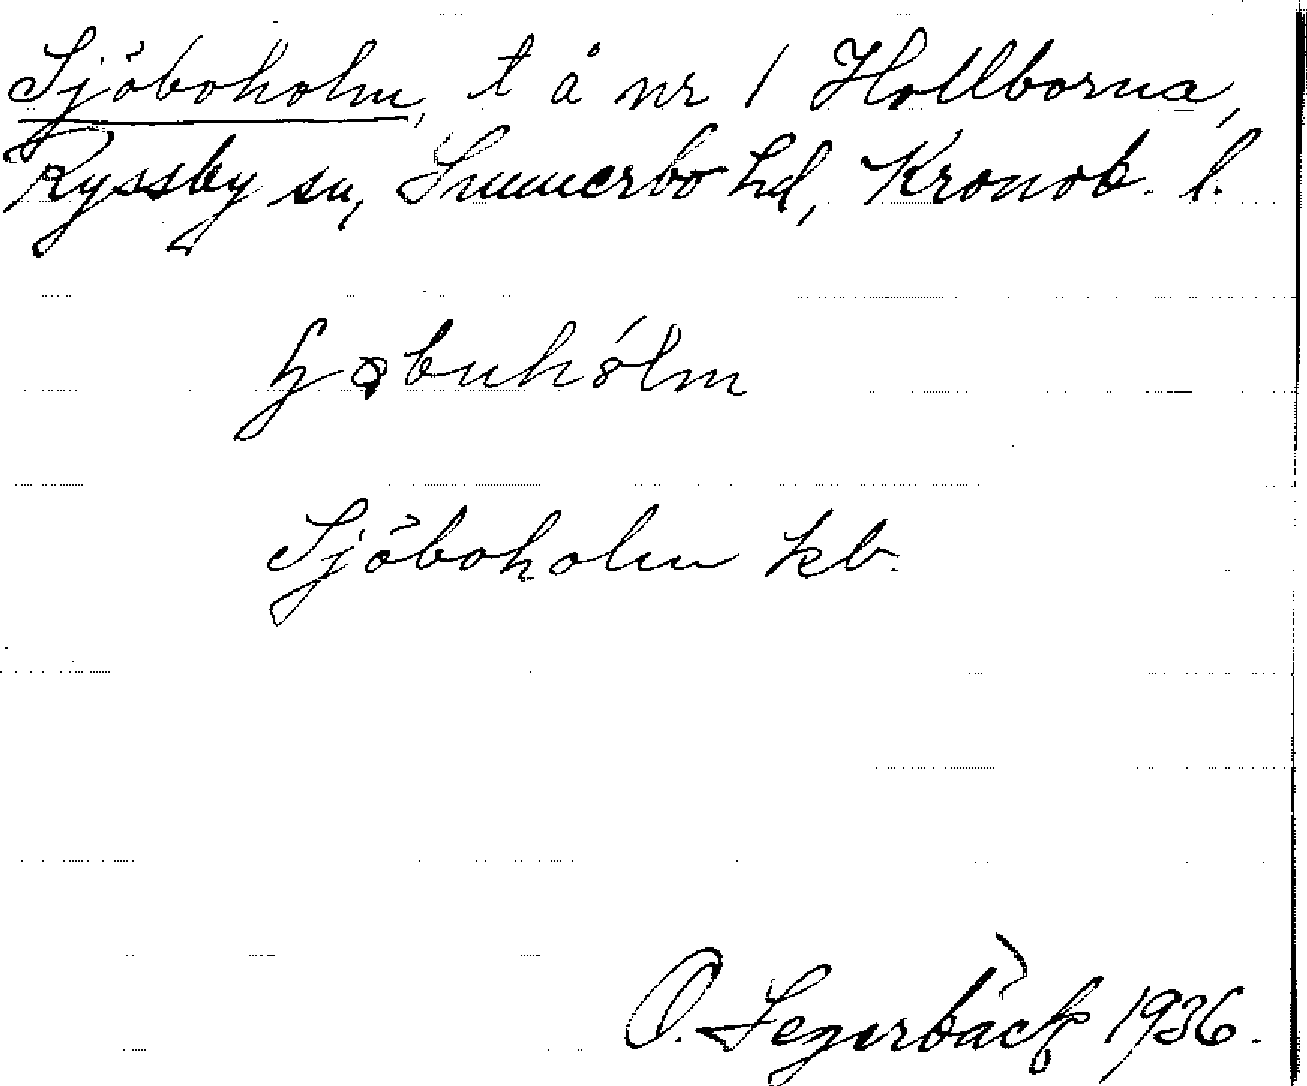 Sjöboholm, t å nr 1 Hollborna,
Ryssby sn, Sunnerbo hd, Kronob. l.
Sjöboholm kb.
O. Segerbäck 1936.